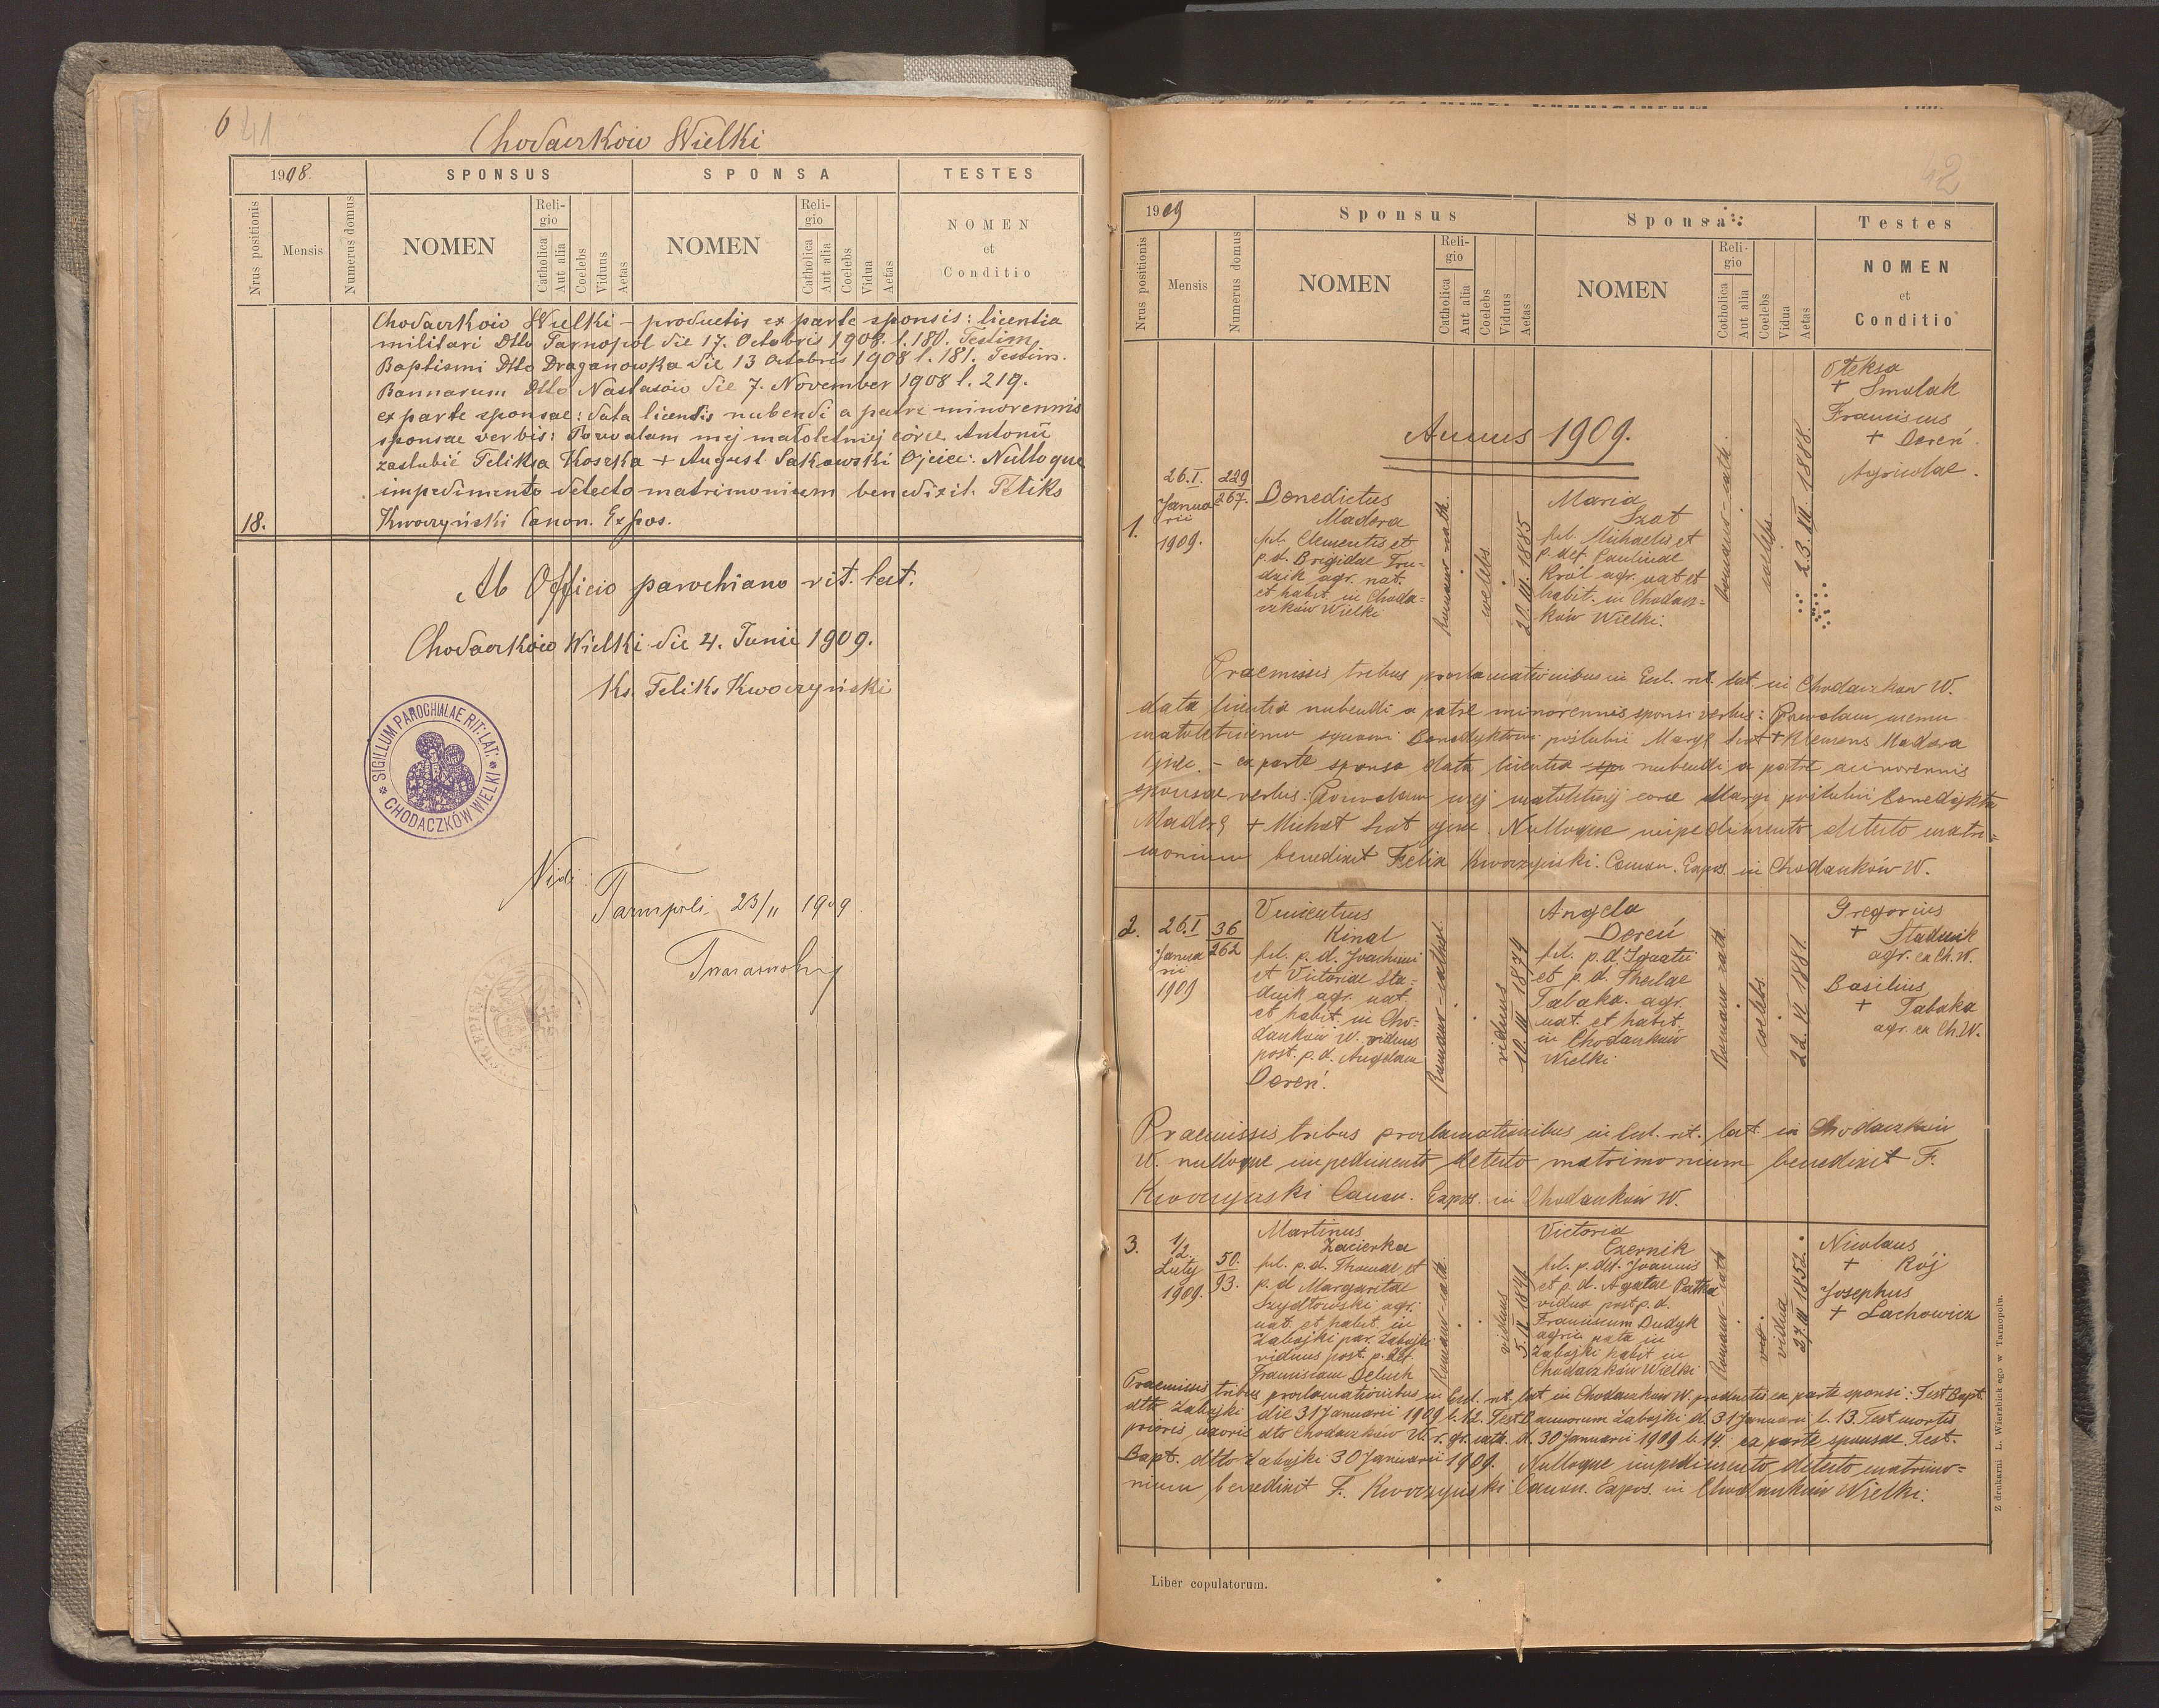 6 41
Chodaczkow Wielki
1908.
SPONSUS
SPONSA
TESTES
Nrus positionis
Mensis
Numerus domus
NOMEN
Religio
Catholica
Aut alia
Coelebs
Viduus
Aetas
NOMEN
Religio
Catholica
Aut alia
Coelebs
Vidua
Aetas
NOMEN
et
Conditio
Chodaczkow Wielki – productis ex parte sponsis: licentia
militari Dtto Tarnopol die 17. Octobris 1908. l. 180. Testim.
Baptismi Dtto Draganowka die 13 Octobris 1908 l. 181. Testim.
Bannarum Dtto Nastasow die 7. November 1908 l. 219.
ex parte sponsae: data licentis nubendi a patre minorennis
sponsae verbis: Pozwalam mej małoletniej córce Antonii
zaślubić Feliksa Koszka + August Sakowski Ojciec. Nulloque
impedimento detecto matrimonium benedixit. Feliks
18. Kwoczyński Canon. Expos.
Ab Officio parochiano rit. lat.
Chodaczkow Wielki die 4. Junii 1909.
Ks. Feliks Kwoczyński
SIGILLUM PAROCHIALAE RIT: LAT:
CHODACZKÓW WIELKI
Vidi
Tarnopoli 23/11 1909
42
1909
Sponsus
Sponsa
Testes
Nrus positionis
Mensis
Numerus domus
NOMEN
Religio
Catholica
Aut alia
Coelebs
Viduus
Aetas
NOMEN
Religio
Cotholica
Aut alia
Coelebs
Vidua
Aetas
NOMEN
et
Conditio
Annus 1909.
1.
26.I.
Janua
rii
1909.
229
267.
Benedictus
Madera
fil. Clementis et
p. d. Brigidae Fru-
dzik agr. nat.
et habit. in Choda-
czków Wielki
Romano-cath.
coelebs
20.III.1885
Maria
Szat
fil. Michaelis et
p. def. Paulinae
Król agr. nat et
habit. in Chodacz-
ków Wielki.
Romano-cath.
coelebs.
23.III.1888.
Oleksa
+ Smolak
Franciscus
+ Dereń.
Agricolae.
Praemissis tribus proclamationibus in Eccl. rit. lat. in Chodaczkow W.
data licentia nubendi a patre minorennis sponsi verbis: Pozwalam memu
małoletniemu synowi Benedyktowi poślubić Maryę Szat + Klemens Madera
Ojciec. – ex parte sponsa data licentia nubendi a patre minorennis
sponsae verbis: Pozwalam mej małoletniej córce Maryi poślubić Benedykta
Maderę + Michał Szat ojciec. Nulloque impedimento detecto matri-
monium benedixit Felix Kwoczyński. Canon. Expos. in Chodaczków W.
2.
26.I
Janua
rii
1909
36
262
Vincentius
Kinal
fil. p. d. Joachimi
et Victoriae Sta-
dnik agr. nat.
et habit. in Cho-
daczków W. viduus
post. p. d. Angelam
Dereń.
Romano-cathol
viduus
10.III 1874
Angela
Dereń
fil. p. d. Ignatii
et p. d. Theclae
Tabaka. agr.
nat. et habit.
in Chodaczków
Wielki
Romano cath.
coelebs.
22.VI 1881.
Gregorius
+ Stadnik
agr. ex Ch. W.
Basilius
+ Tabaka
agr. ex Ch. W.
Praemissis tribus proclamationibus in Eccl. rit. lat. in Chodaczków
W. nulloque impedimento detecto matrimonium benedixit F.
Kwoczyński Canon. Expos. in Chodaczków W.
3.
1/2.
Luty
1909.
50.
93.
Martinus
Zacierka
fil. p. d. Thomae et
p. d Margaritae
Szydłowski agr.
nat. et habit. in
Zabojki par. Zabojki
viduus post. p. def.
Franciscam Deluch
Romano-cath.
viduus
Victoria
Czernik
fil. p. def. Joannis
et p. d. Agatae Patka
vidua post p. d.
Franciscum Dudyk
agric nata in
Zabojki habit in
Chodaczków Wielki
Romano-cath
vidua
Nicolaus
+ Rój
Josephus
+ Lachowicz
Praemissis tribus proclamationibus in Eccl. rit. lat in Chodaczkow W. productis ex parte sponsi: Test Bapt.
dtto Zabojki die 31 Januarii 1909 l. 12. Test Bannorum Zabojki d. 31 Januarii l. 13. Test mortis
prioris uxoris dto Chodaczkow W. r. gr. cath. d. 30 Januarii 1909 l. 14 ex parte sponsae Test.
Bapt. dtto Zabojki 30 Januarii 1909. Nulloque impedimento detecto matrimo-
nium benedixit F. Kwoczyński Canon. Expos. in Chodaczków Wielki.
Liber copulatorum.